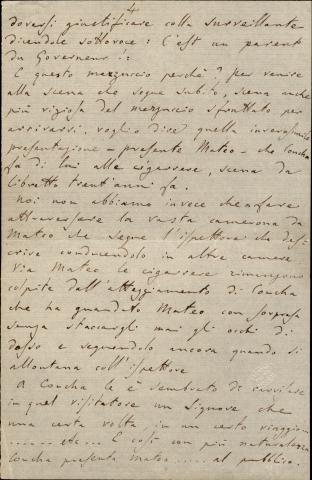 4
doversi giustificare colla surveillante
dicendole sottovoce: C'est un parent
du Governeur.:
E questo mezzuccio perchè? Per venire
alla scena che segue subito, scena anche
più viziosa del mezzuccio sfruttato per
arrivarvi, voglio dire quella inverosimile
presentazione - presente Mateo - che Concha
fa di lui alle cigarrere, scena da
libretto trent'anni fa.
Noi non abbiamo invece che a fare
attraversare la vasta camerona da
Mateo che segue l'ispettore che
conducendolo in altre camere
Via Mateo le cigarrere rimangono
colpite dall'atteggiamento di Concha
che ha guardato Mateo con sorpresa
senza staccargli mai gli occhi di
dosso e seguendolo ancora quando si
allontana coll'ispettore
A Concha le è sembrato di ravvisare
in quel visitatore un Signore che
una certa volta, in un certo viaggio
........ etc... E così con più naturalezza
Concha presenta Mateo ..... al pubblico.